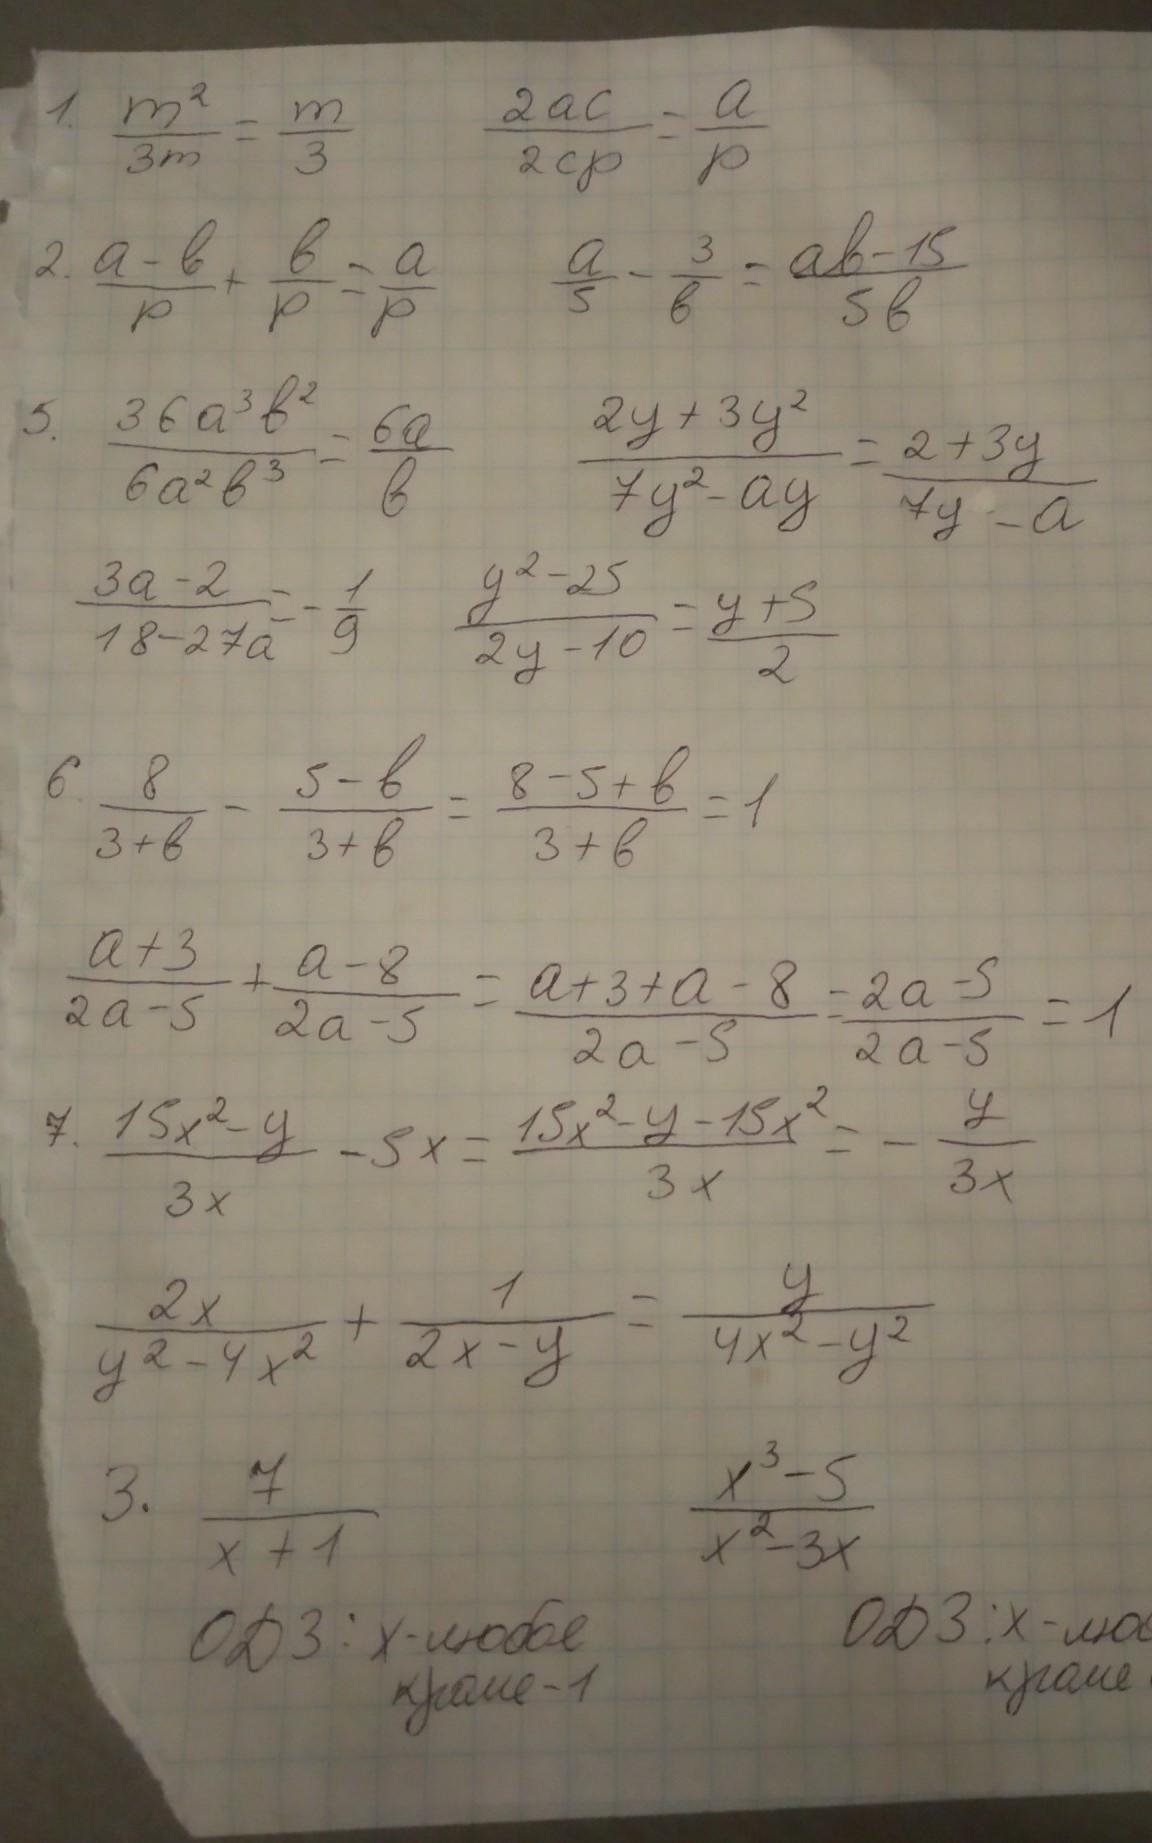 1. m²/3m = m/3   2ac/2cp = a/p
2. (a-b)/p + b/p = a/p   a/5 - 3/b = (ab-15)/5b
5. 36a³b²/6a²b³ = 6a/b   (2y+3y²)/(7y²-ay) = (2+3y)/(7y-a)
(3a-2)/(18-27a) = -1/9   (y²-25)/(2y-10) = (y+5)/2
6. 8/(3+b) - (5-b)/(3+b) = (8-5+b)/(3+b) = 1
(a+3)/(2a-5) + (a-8)/(2a-5) = (a+3+a-8)/(2a-5) = (2a-5)/(2a-5) = 1
7. (15x²-y)/3x - 5x = (15x²-y-15x²)/3x = - y/3x
2x/(y²-4x²) + 1/(2x-y) = y/(4x²-y²)
3. 7/(x+1)   (x³-5)/(x²-3x)
ОДЗ: x-любое   ОДЗ: x-
кроме -1   кроме